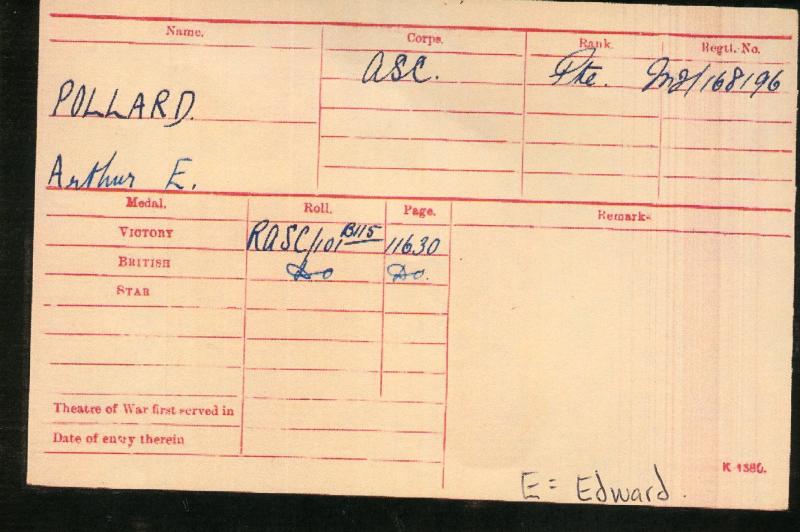 Name. Corps. Rank. Regtl. No.
ASC. Pte. M2/168196
POLLARD.
Arthur E.
Medal. Roll. Page. Remarks
VICTORY RASC/101 B115 11630
BRITISH Do Do.
STAR
Theatre of War first served in
Date of entry therein
K 1380.
E = Edward.